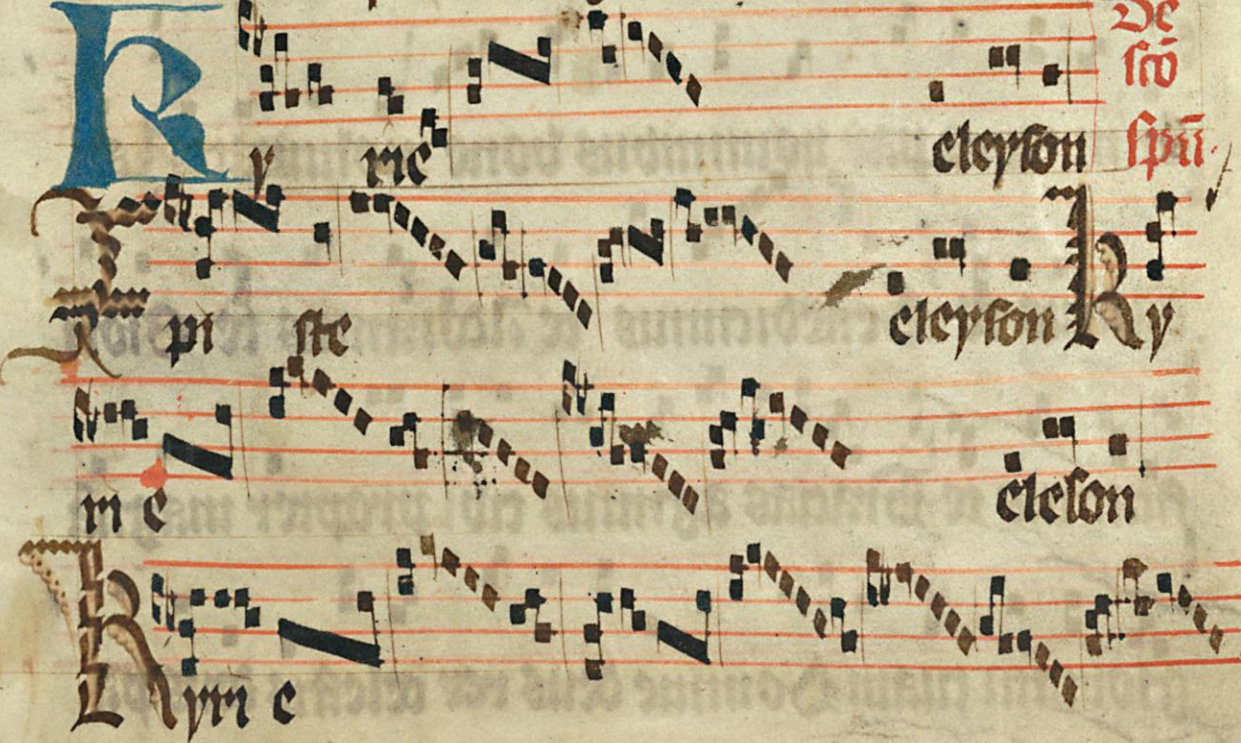 De
sco
Ky rie eleyson spu
Xpi ste eleyson Ky
ri e eleson
Kyri e